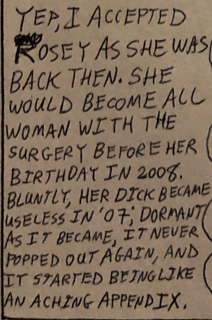 YEP, I ACCEPTED
ROSEY AS SHE WAS
BACK THEN. SHE
WOULD BECOME ALL
WOMAN WITH THE
SURGERY BEFORE HER
BIRTHDAY IN 2008.
BLUNTLY, HER DICK BECAME
USELESS IN '07; DORMANT
AS IT BECAME, IT NEVER
POPPED OUT AGAIN, AND
IT STARTED BEING LIKE
AN ACHING APPENDIX.